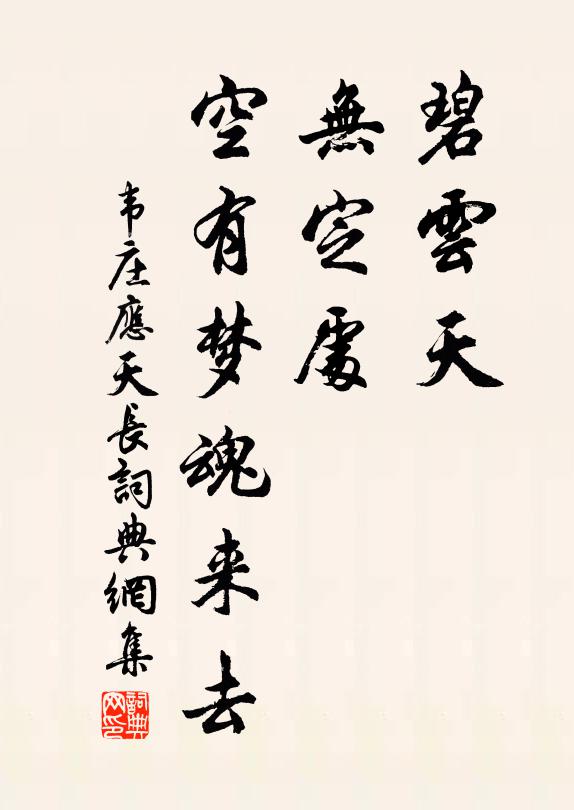 碧雲天
無定處
空有梦魂来去
韦庄應天長詞典網集
詞典网印